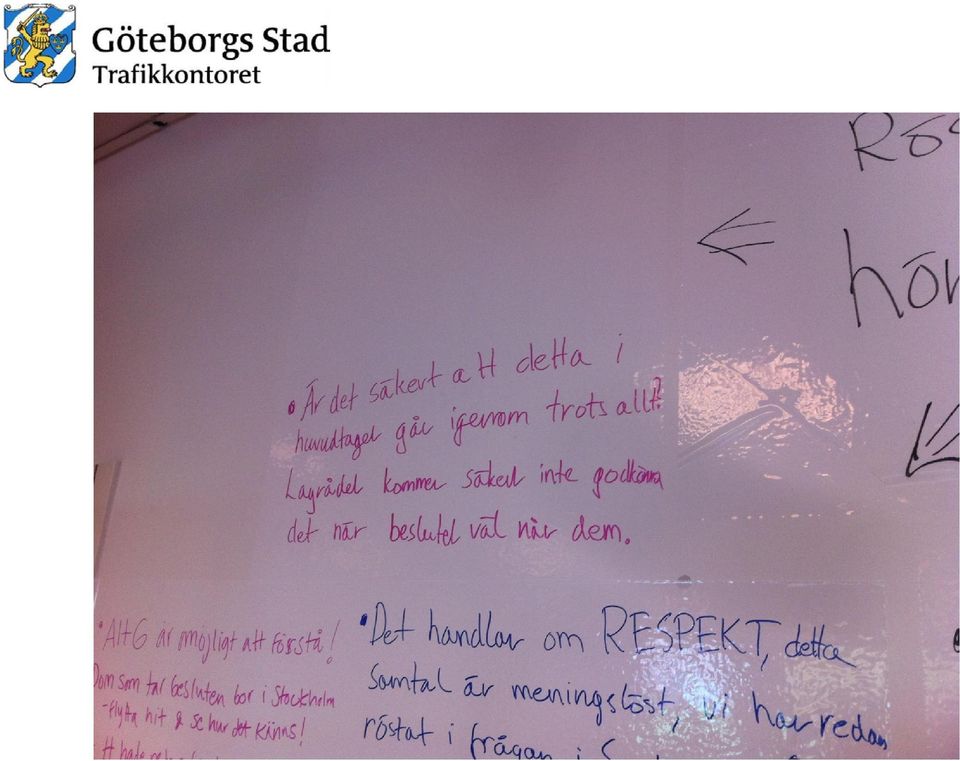 Göteborgs Stad
Trafikkontoret
Rös
hör
• Är det säkert att detta i
huvudtaget går igenom trots allt?
Lagrådet kommer säkert inte godkänna
det när beslutet väl når dem.
• Alt 6 är omöjligt att förstå!
Dom som tar besluten bor i Stockholm
- Flytta hit & se hur det känns!
• Det handlar om RESPEKT, detta
samtal är meningslöst, vi har redan
röstat i frågan i